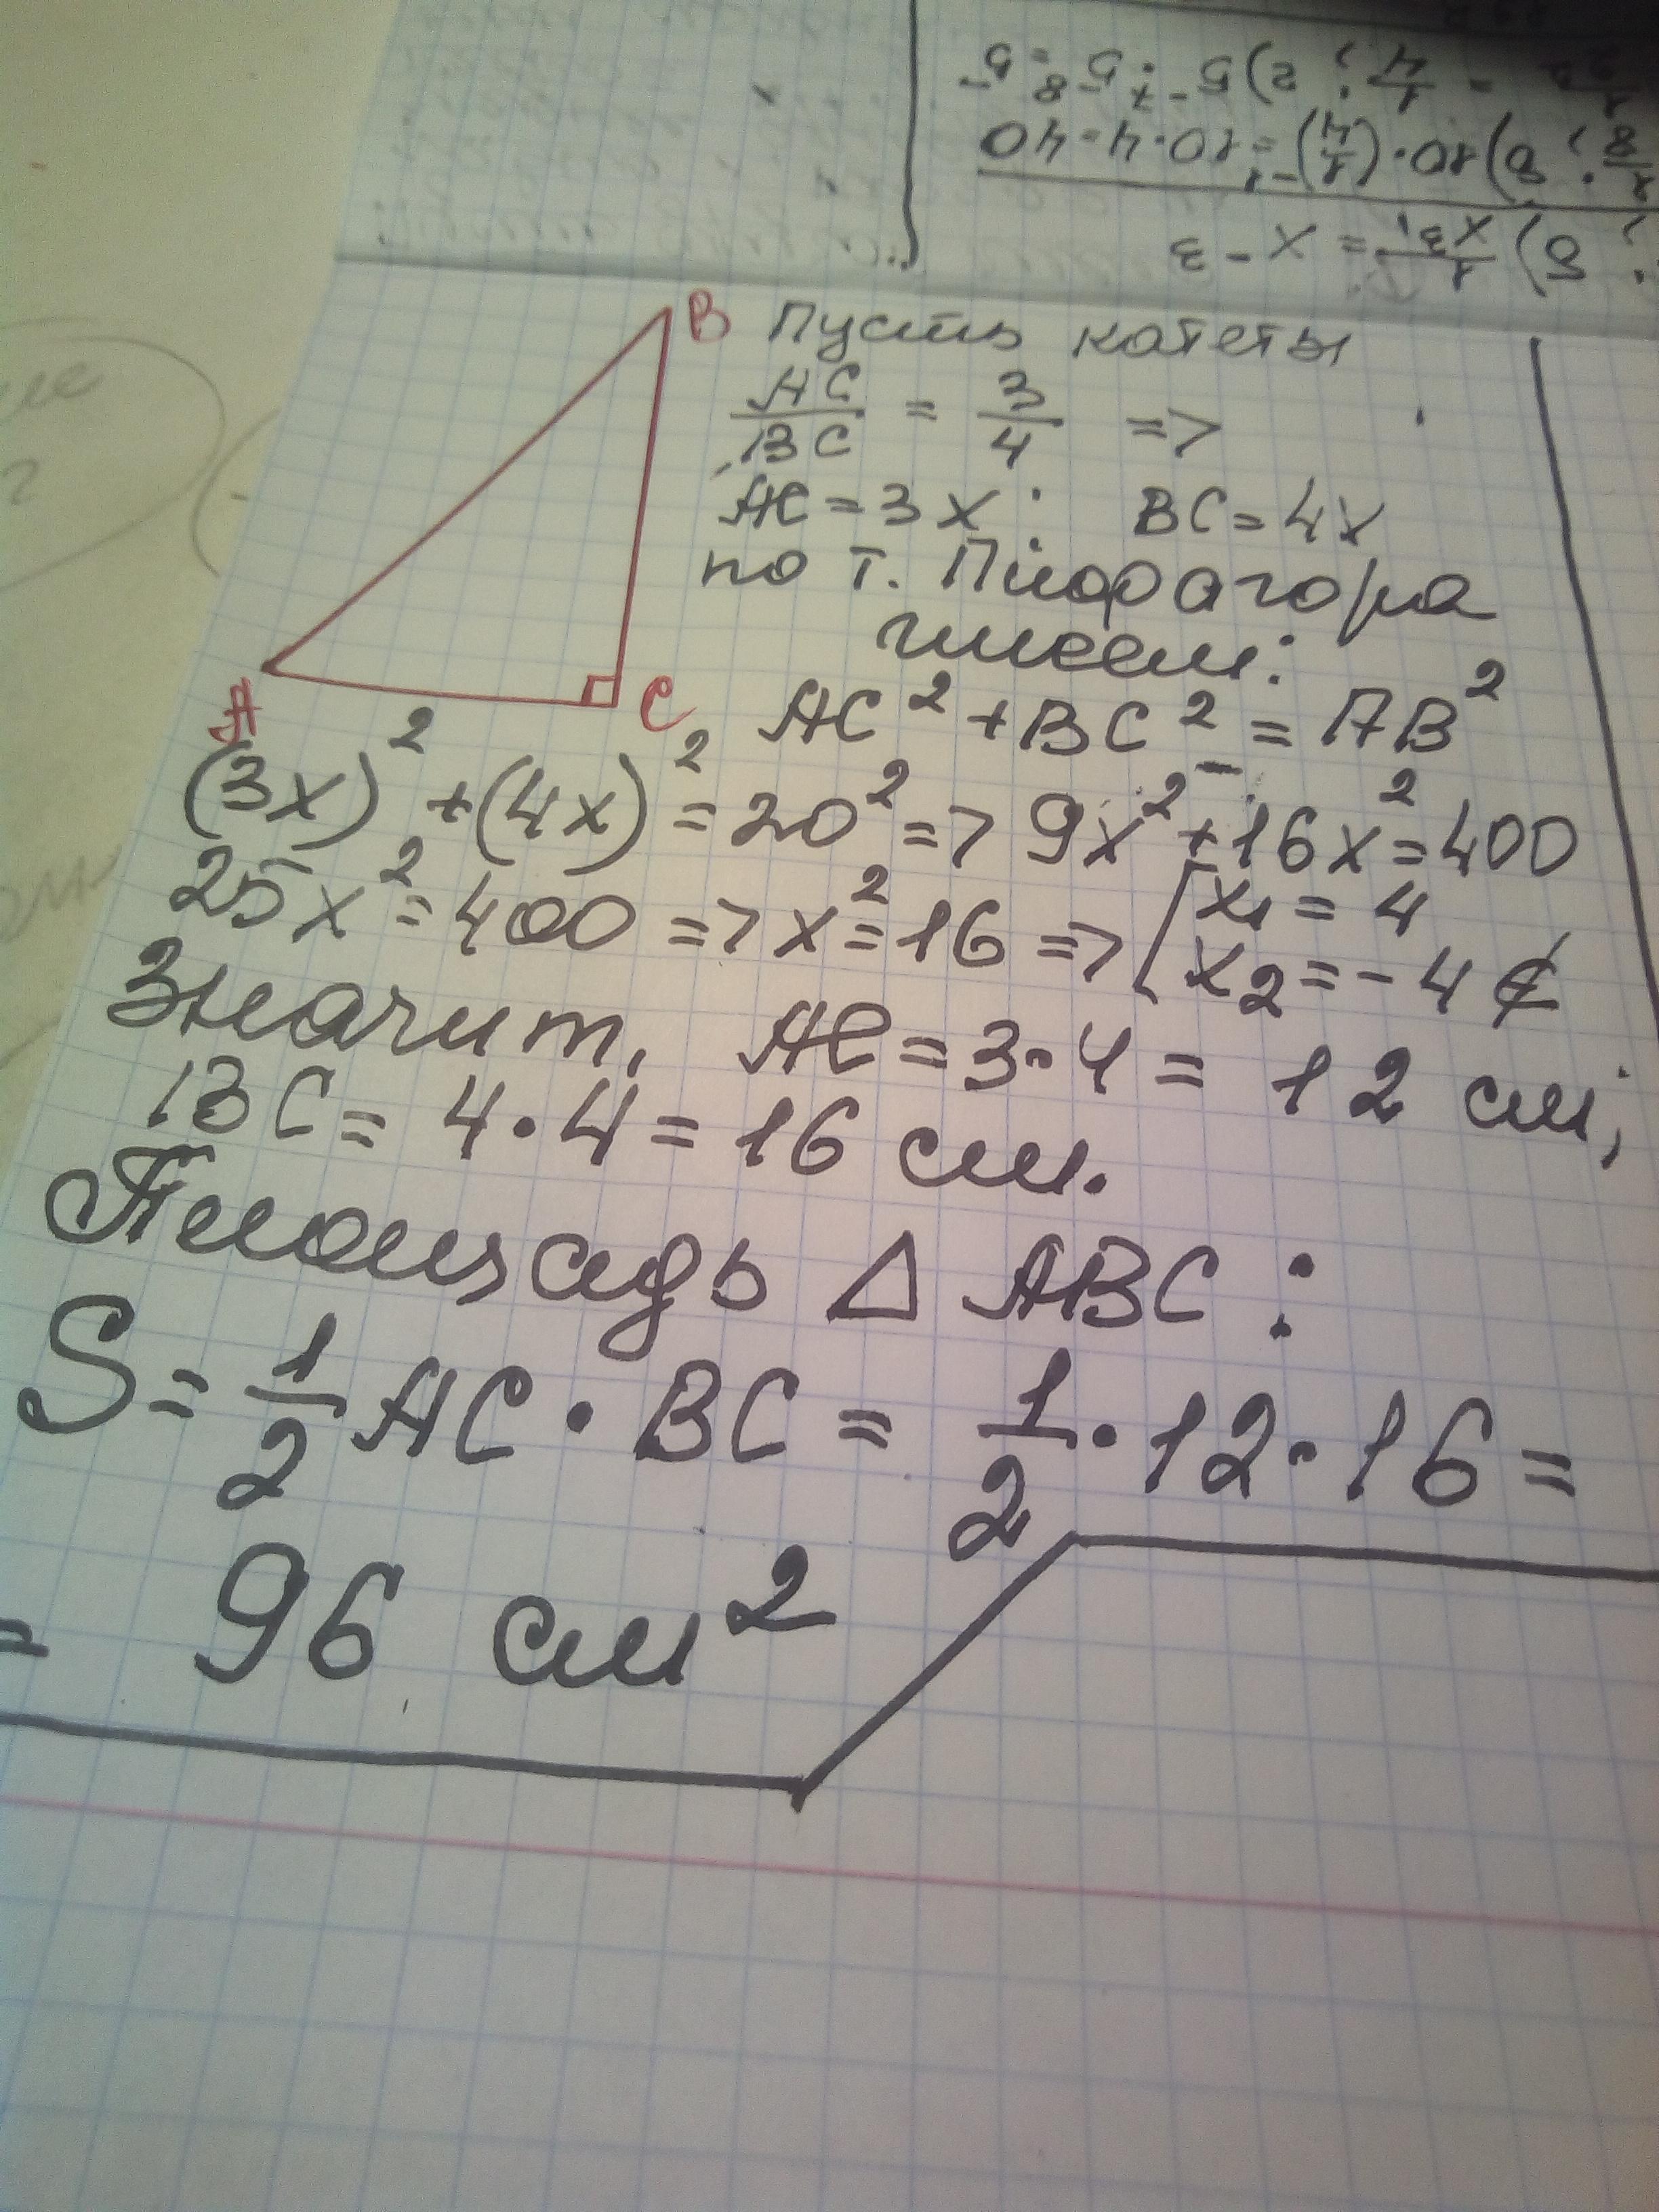 B
A
C
Пусть катеты
AC/BC = 3/4 =>
AC = 3x; BC = 4x
по т. Пифагора
имеем:
AC² + BC² = AB²
(3x)² + (4x)² = 20² => 9x² + 16x² = 400
25x² = 400 => x² = 16 => [x₁ = 4
x₂ = -4 ∉
Значит, AC = 3·4 = 12 см;
BC = 4·4 = 16 см.
Площадь △ ABC:
S = 1/2 AC · BC = 1/2 · 12 · 16 =
= 96 см²
б) 1/x³ = x⁻³
б) 10·(1/4)⁻¹ = 10·4 = 40